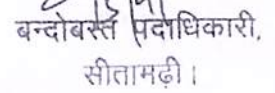 बन्दोबस्त पदाधिकारी,
सीतामढ़ी।